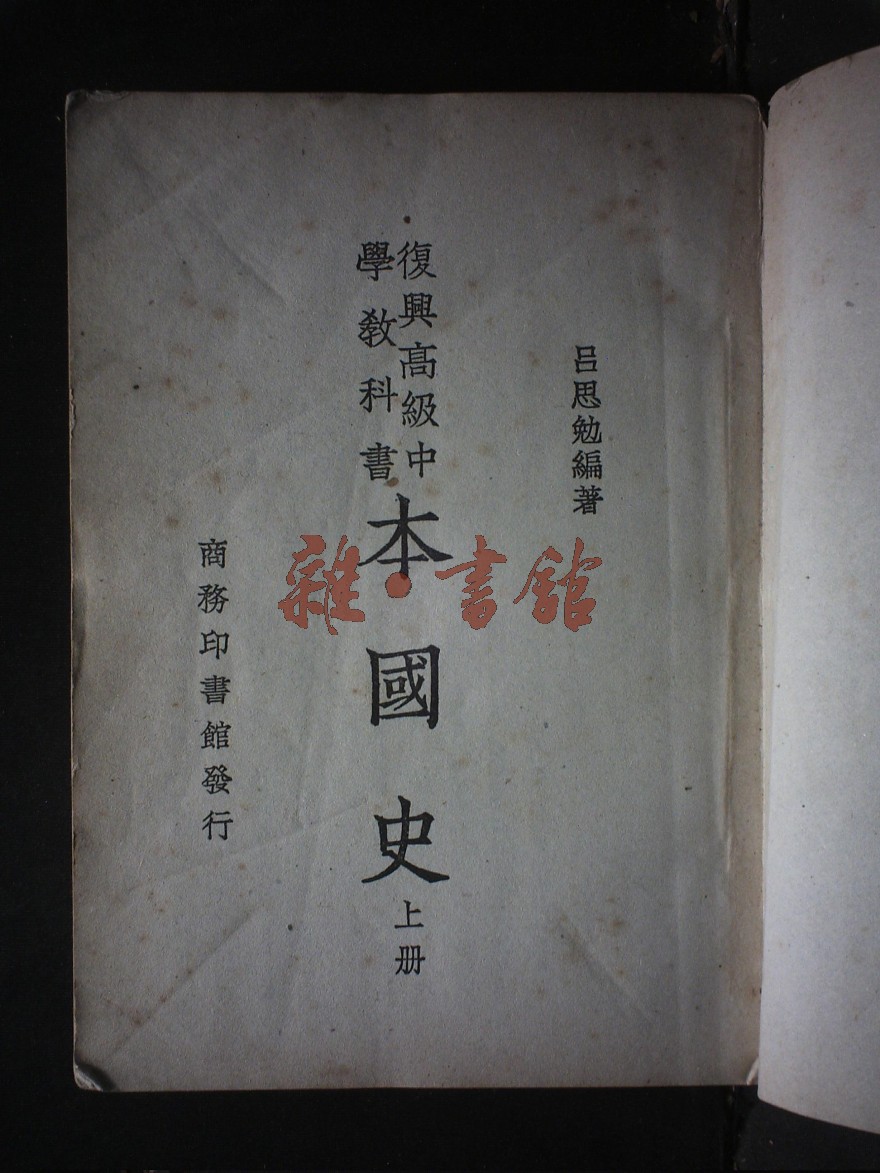 呂思勉編著
復興高級中
學教科書
本國史
上册
商務印書館發行
雜·書館